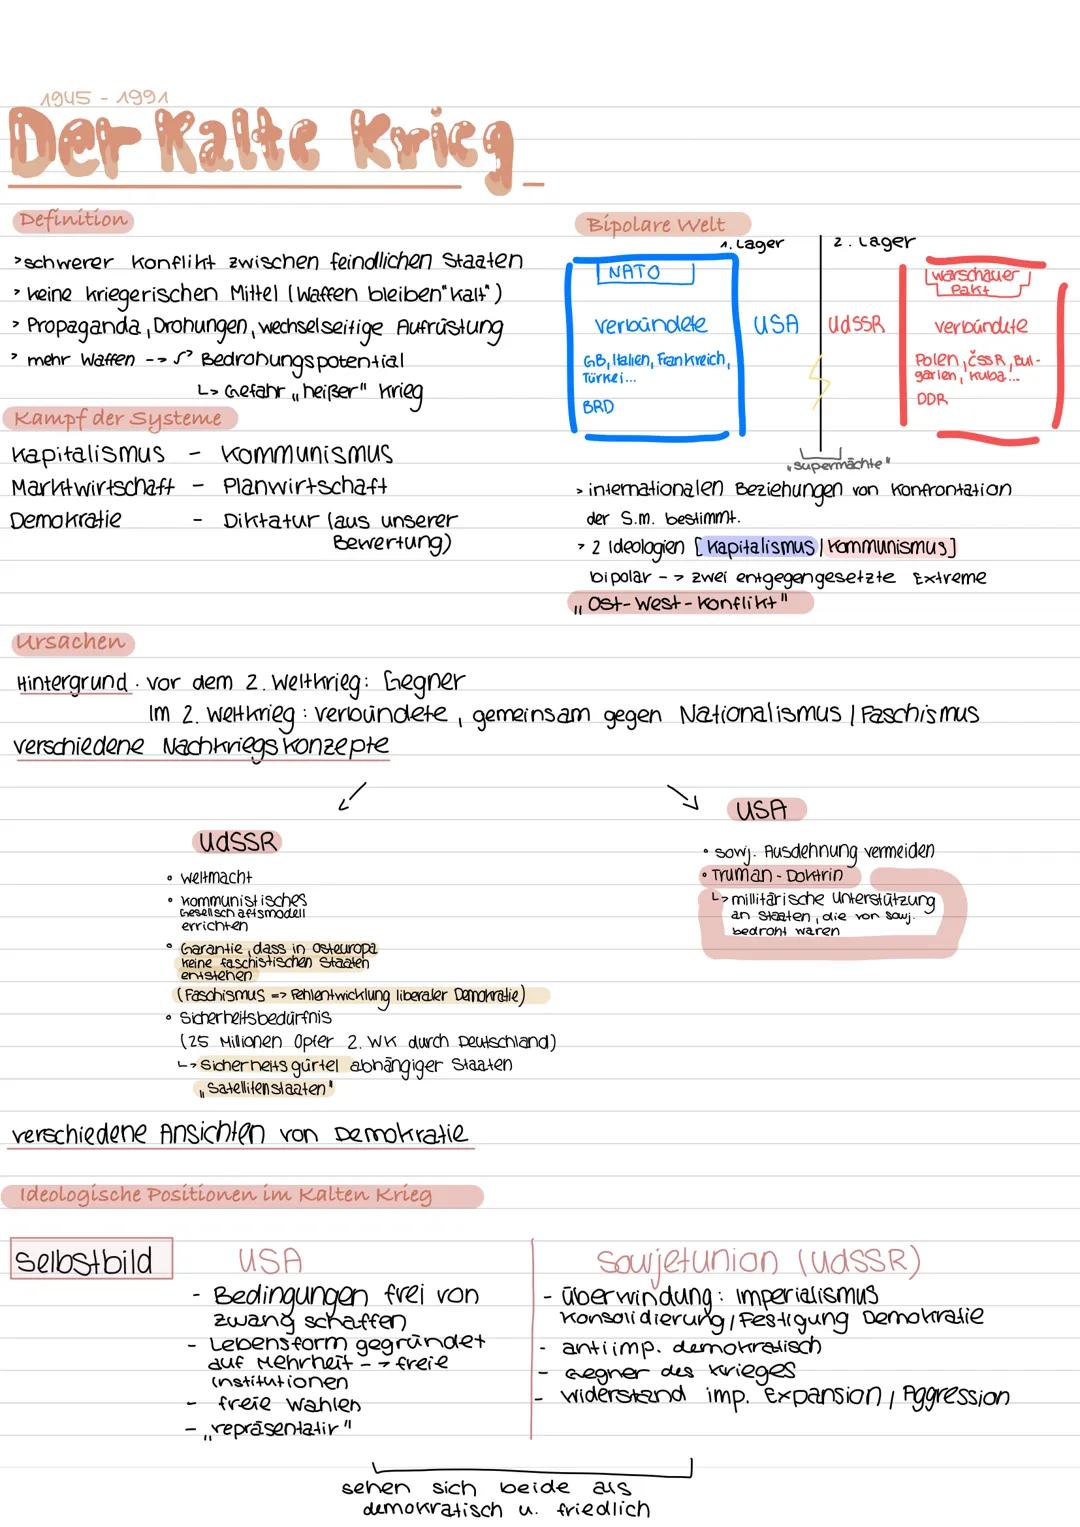 1945 - 1991
Der Kalte Krieg
Definition
> schwerer Konflikt zwischen feindlichen Staaten
> keine kriegerischen Mittel (Waffen bleiben "kalt")
> Propaganda, Drohungen, wechselseitige Aufrüstung
> mehr Waffen --> Bedrohungspotential
↳ Gefahr „heißer" Krieg
Kampf der Systeme
Kapitalismus - Kommunismus
Marktwirtschaft - Planwirtschaft
Demokratie - Diktatur (aus unserer
Bewertung)
Bipolare Welt
1. Lager
2. Lager
NATO
verbündete
GB, Italien, Frankreich,
Türkei...
BRD
USA
UdSSR
Warschauer
Pakt
verbündete
Polen, ČSSR, Bul-
garien, Kuba...
DDR
„Supermächte"
> internationalen Beziehungen von Konfrontation
der S.M. bestimmt.
> 2 Ideologien [Kapitalismus | Kommunismus]
bipolar --> zwei entgegengesetzte Extreme
„Ost-West-Konflikt"
Ursachen
Hintergrund · vor dem 2. Weltkrieg: Gegner
Im 2. Weltkrieg: verbündete, gemeinsam gegen Nationalismus / Faschismus
verschiedene Nachkriegskonzepte
UdSSR
• Weltmacht
• kommunistisches
Gesellschaftsmodell
errichten
• Garantie, dass in Osteuropa
keine faschistischen Staaten
entstehen
(Faschismus => Fehlentwicklung liberaler Demokratie)
• Sicherheitsbedürfnis
(25 Millionen Opfer 2. WK durch Deutschland)
↳ Sicherheitsgürtel abhängiger Staaten
„Satellitenstaaten"
USA
• sowj. Ausdehnung vermeiden
• Truman-Doktrin
↳ millitärische Unterstützung
an Staaten, die von sowj.
bedroht waren
verschiedene Ansichten von Demokratie
Ideologische Positionen im Kalten Krieg
Selbstbild
USA
- Bedingungen frei von
zwang schaffen
- Lebensform gegründet
auf Mehrheit --> freie
institutionen
- freie Wahlen
- „repräsentativ"
Sowjetunion (UdSSR)
- Überwindung: Imperialismus
Konsolidierung / Festigung Demokratie
- antiimp. demokratisch
- Gegner des Krieges
- Widerstand imp. Expansion / Aggression
sehen sich beide als
demokratisch u. friedlich